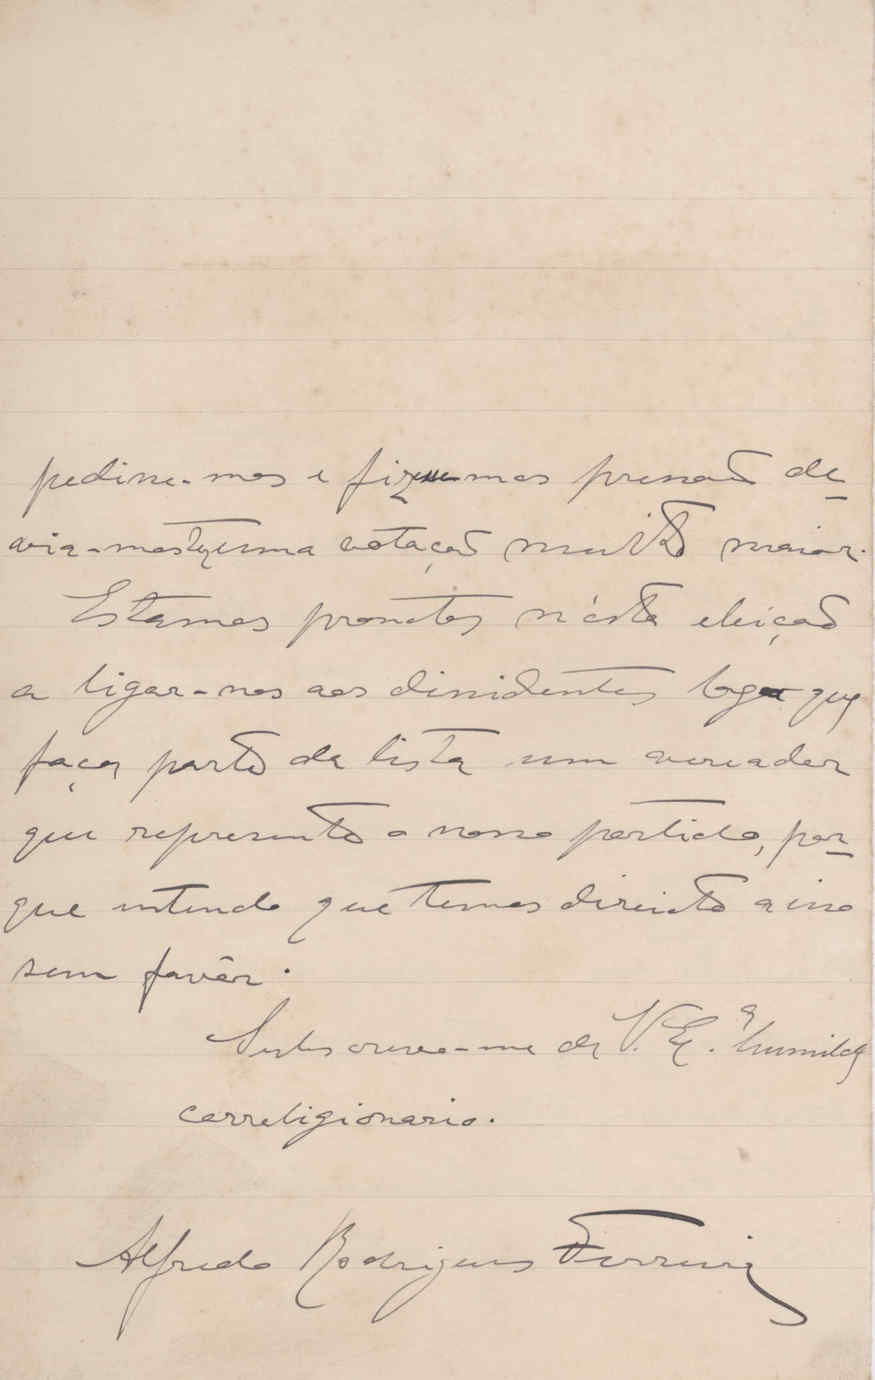 pedisse-mos e fizesse-mos pressão de-
via-mos ter uma votação muito maior.
Estamos promtos n'ésta eleição
a ligar-nos aos dissidentes logo que
faça parte da lista um vereador
que represente o nosso partido, por-
que intendo que temos direito a isso
sem favôr.
Subscrevo-me de V. Ex.ª humilde
correligionario.
Alfredo Rodrigues Ferreira